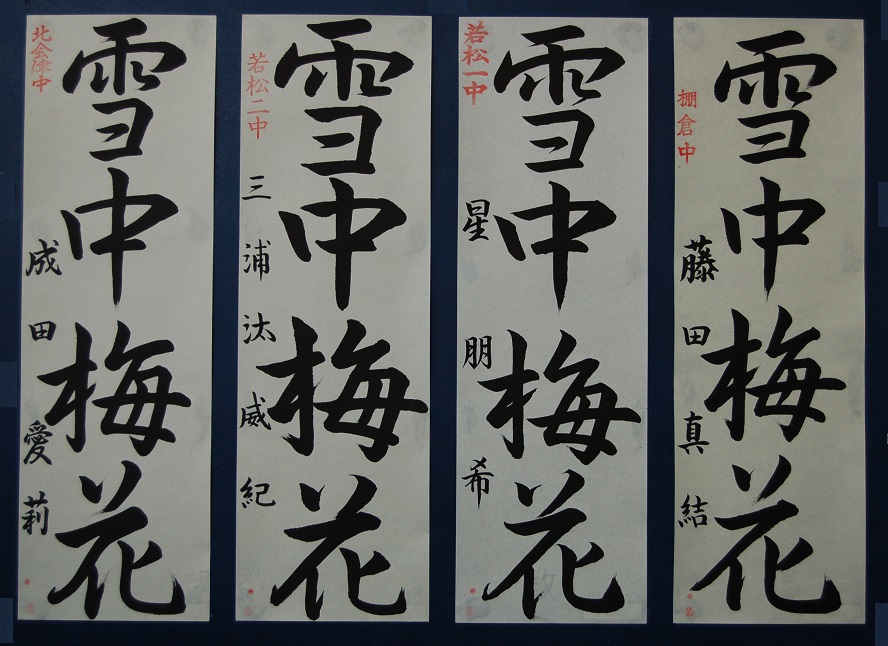 雪中梅花
棚倉中
藤田真結
雪中梅花
若松一中
星朋希
雪中梅花
若松二中
三浦汰威紀
雪中梅花
北会津中
成田愛莉